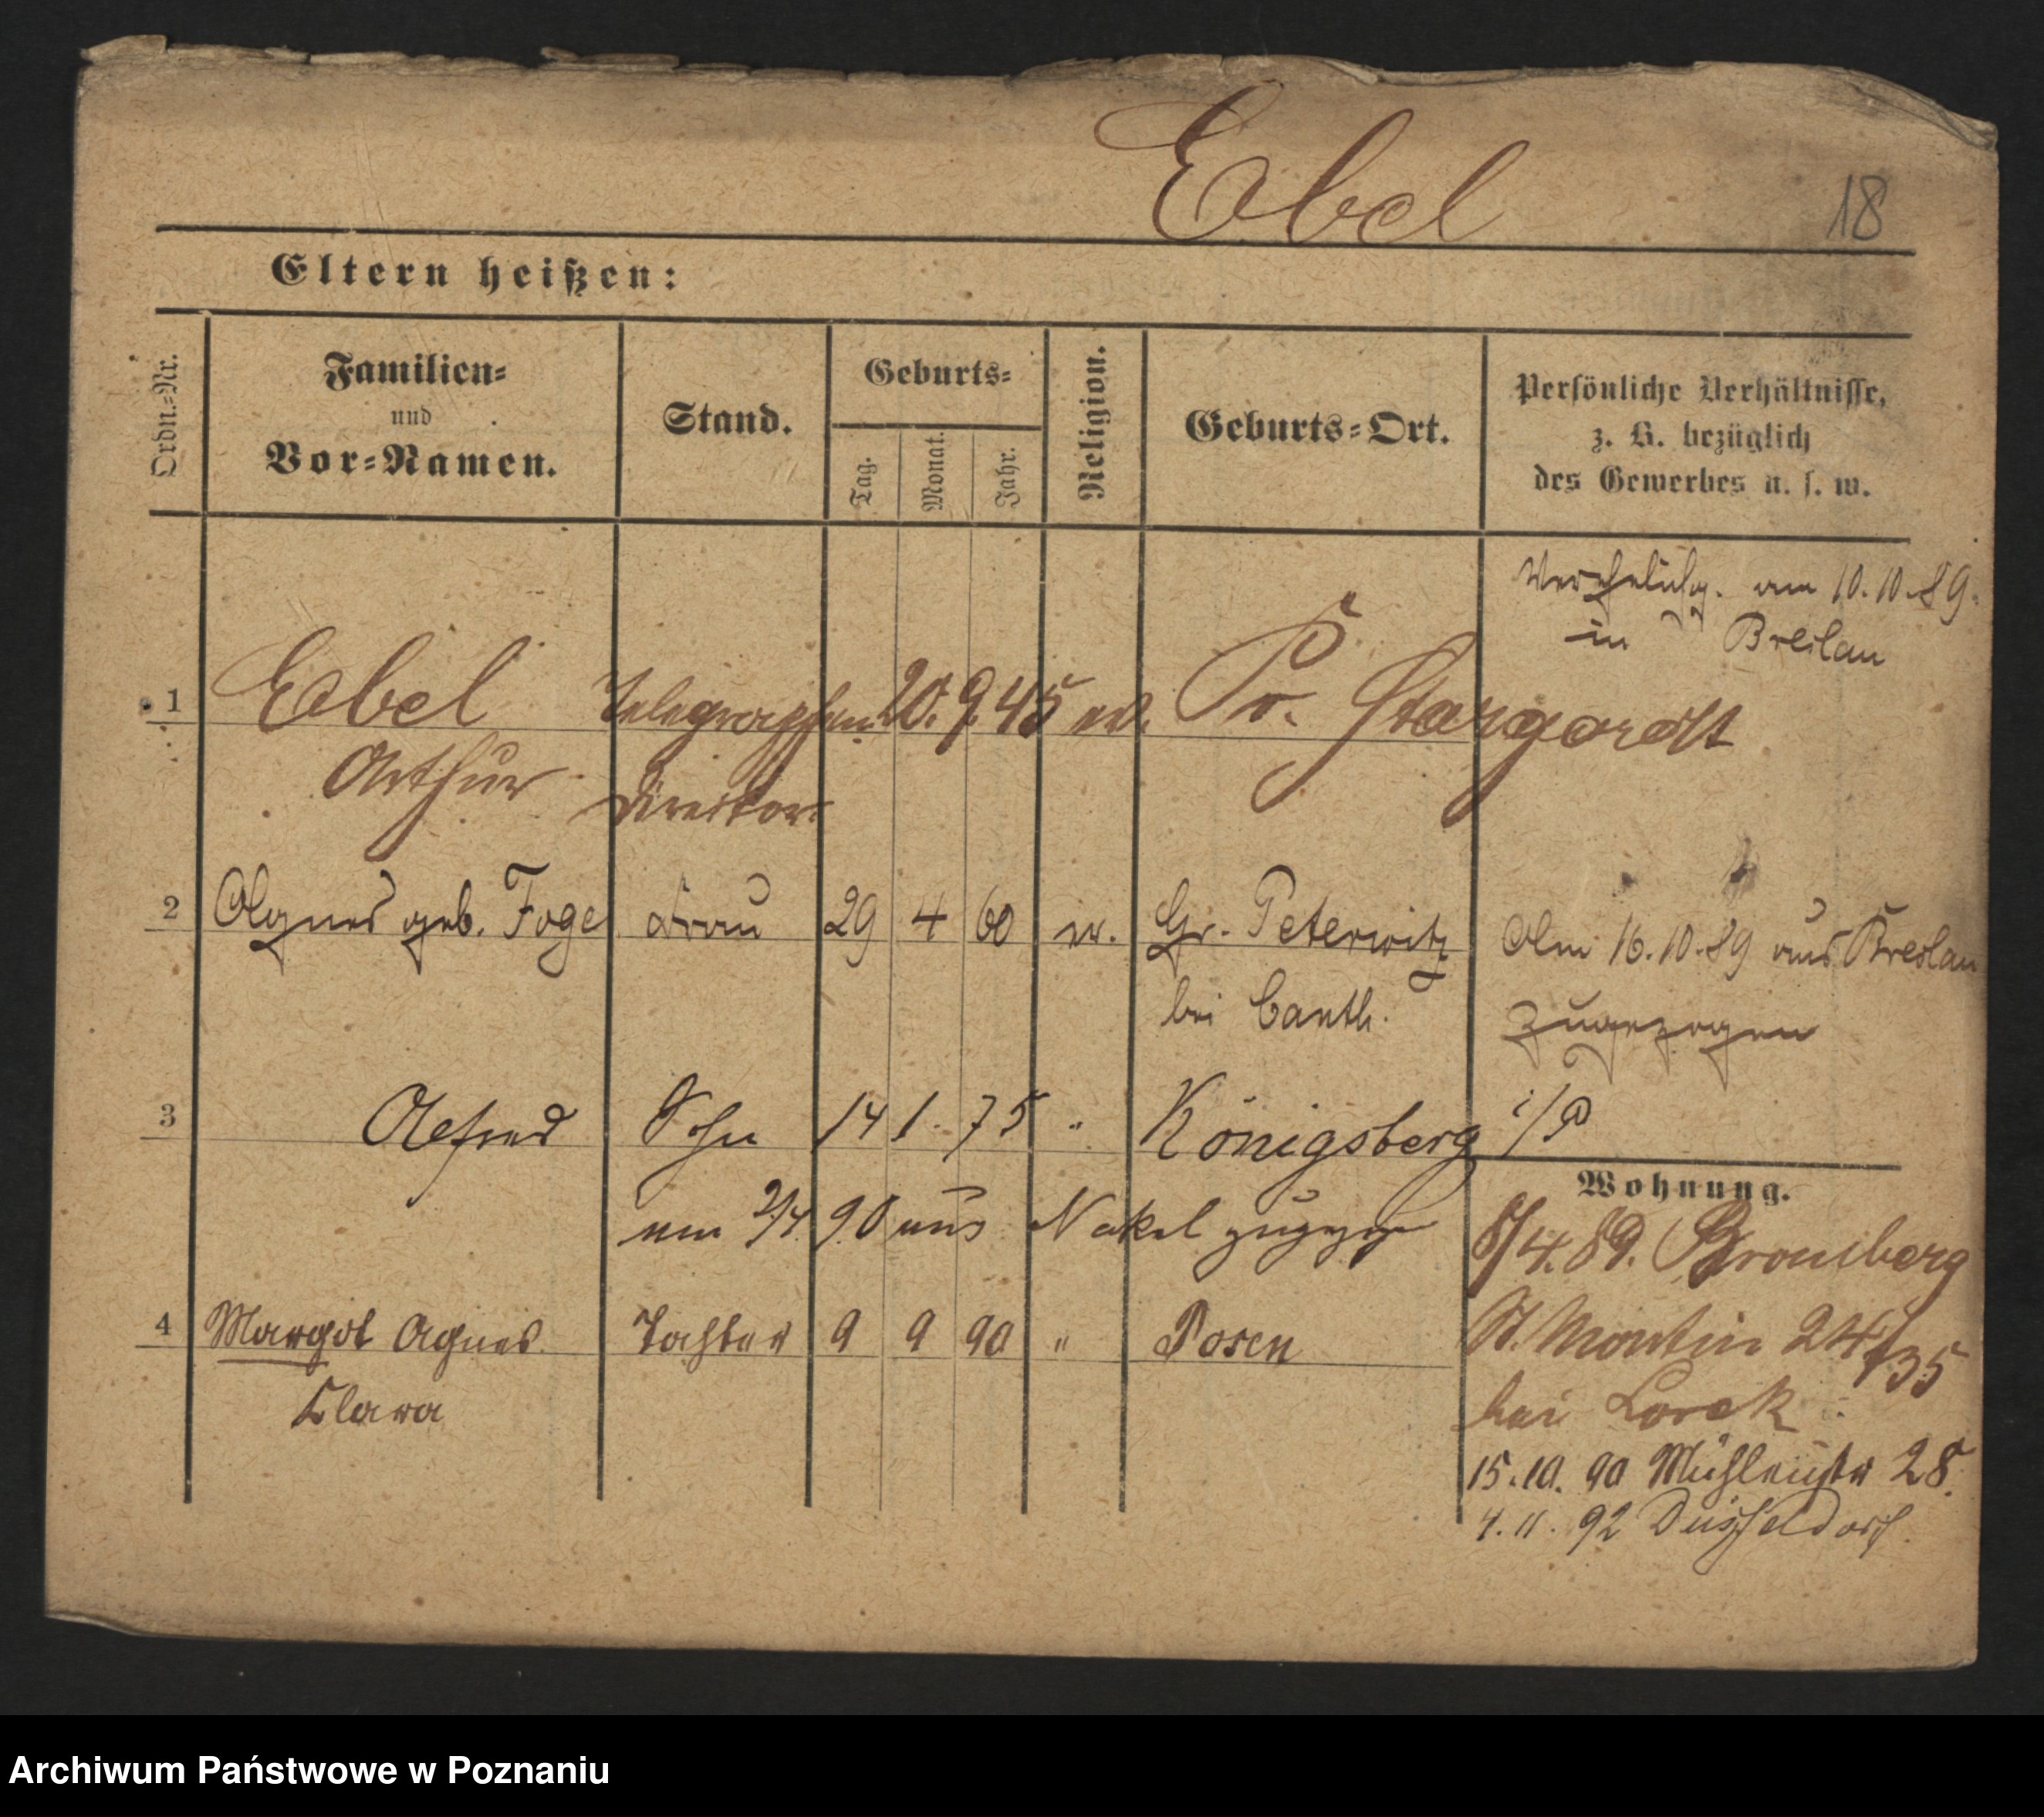 Ebel
18
Eltern heißen:
Ordn.-Nr.
Familien-
und
Vor-Namen.
Stand.
Geburts-
Tag.
Monat.
Jahr.
Religion.
Geburts-Ort.
Persönliche Verhältnisse,
z. B. bezüglich
des Gewerbes u. s. w.
Verehelichg. am 10.10.89.
in Breslau
1 Ebel Telegraphen 20. 9. 45 ev. Pr. Stargardt
Arthur Direktor
2 Agnes geb. Foge Frau 29 4 60 ev. Gr. Peterwitz Am 16.10.89 aus Breslau
bei Canth. zugezogen
3 Alfred Sohn 14 1. 75 " Königsberg i/P
am 2/4. 90 aus Nakel zugezogen
Wohnung.
8/4. 89. Bromberg
4 Margot Agnes Tochter 9 9 90 " Posen
Klara
St. Martin 24/35
bei Lorek
15.10. 90 Mühlenstr 28.
4. 11. 92 Düsseldorf
Archiwum Państwowe w Poznaniu